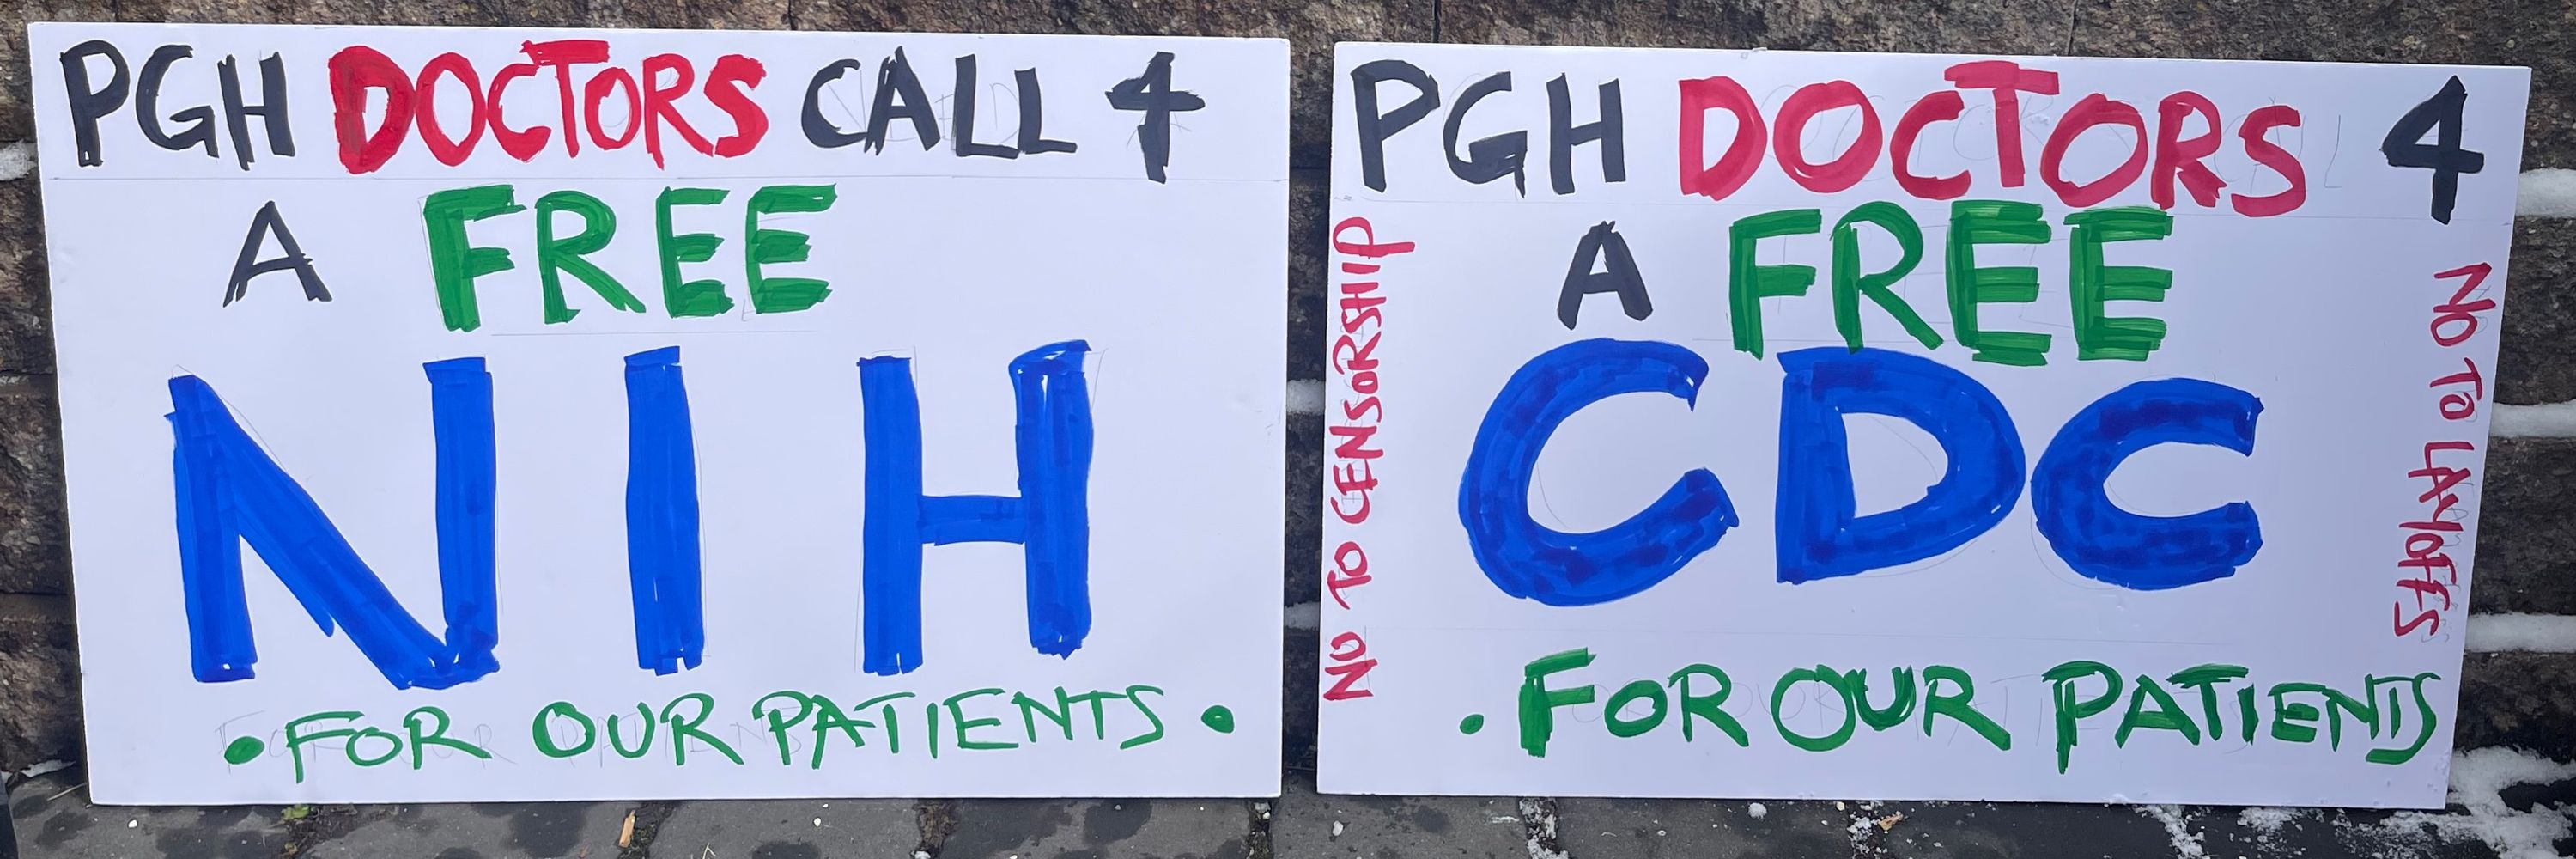 PGH DOCTORS CALL 4
A FREE
NIH
• FOR OUR PATIENTS •
PGH DOCTORS 4
A FREE
CDC
• FOR OUR PATIENTS
NO TO CENSORSHIP
NO TO LAYOFFS